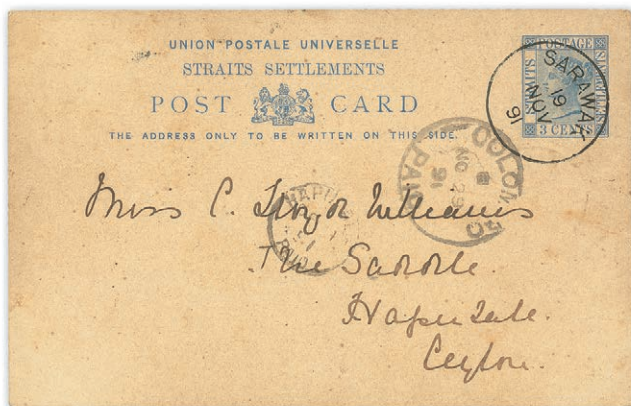 UNION POSTALE UNIVERSELLE
STRAITS SETTLEMENTS
POST CARD
THE ADDRESS ONLY TO BE WRITTEN ON THIS SIDE.
STRAITS
POSTAGE
3 CENTS
SARAWAK
19
NOV
91
COLOMBO
NO 29
91
PAID
Miss C. Williams
The
Haputale.
Ceylon.